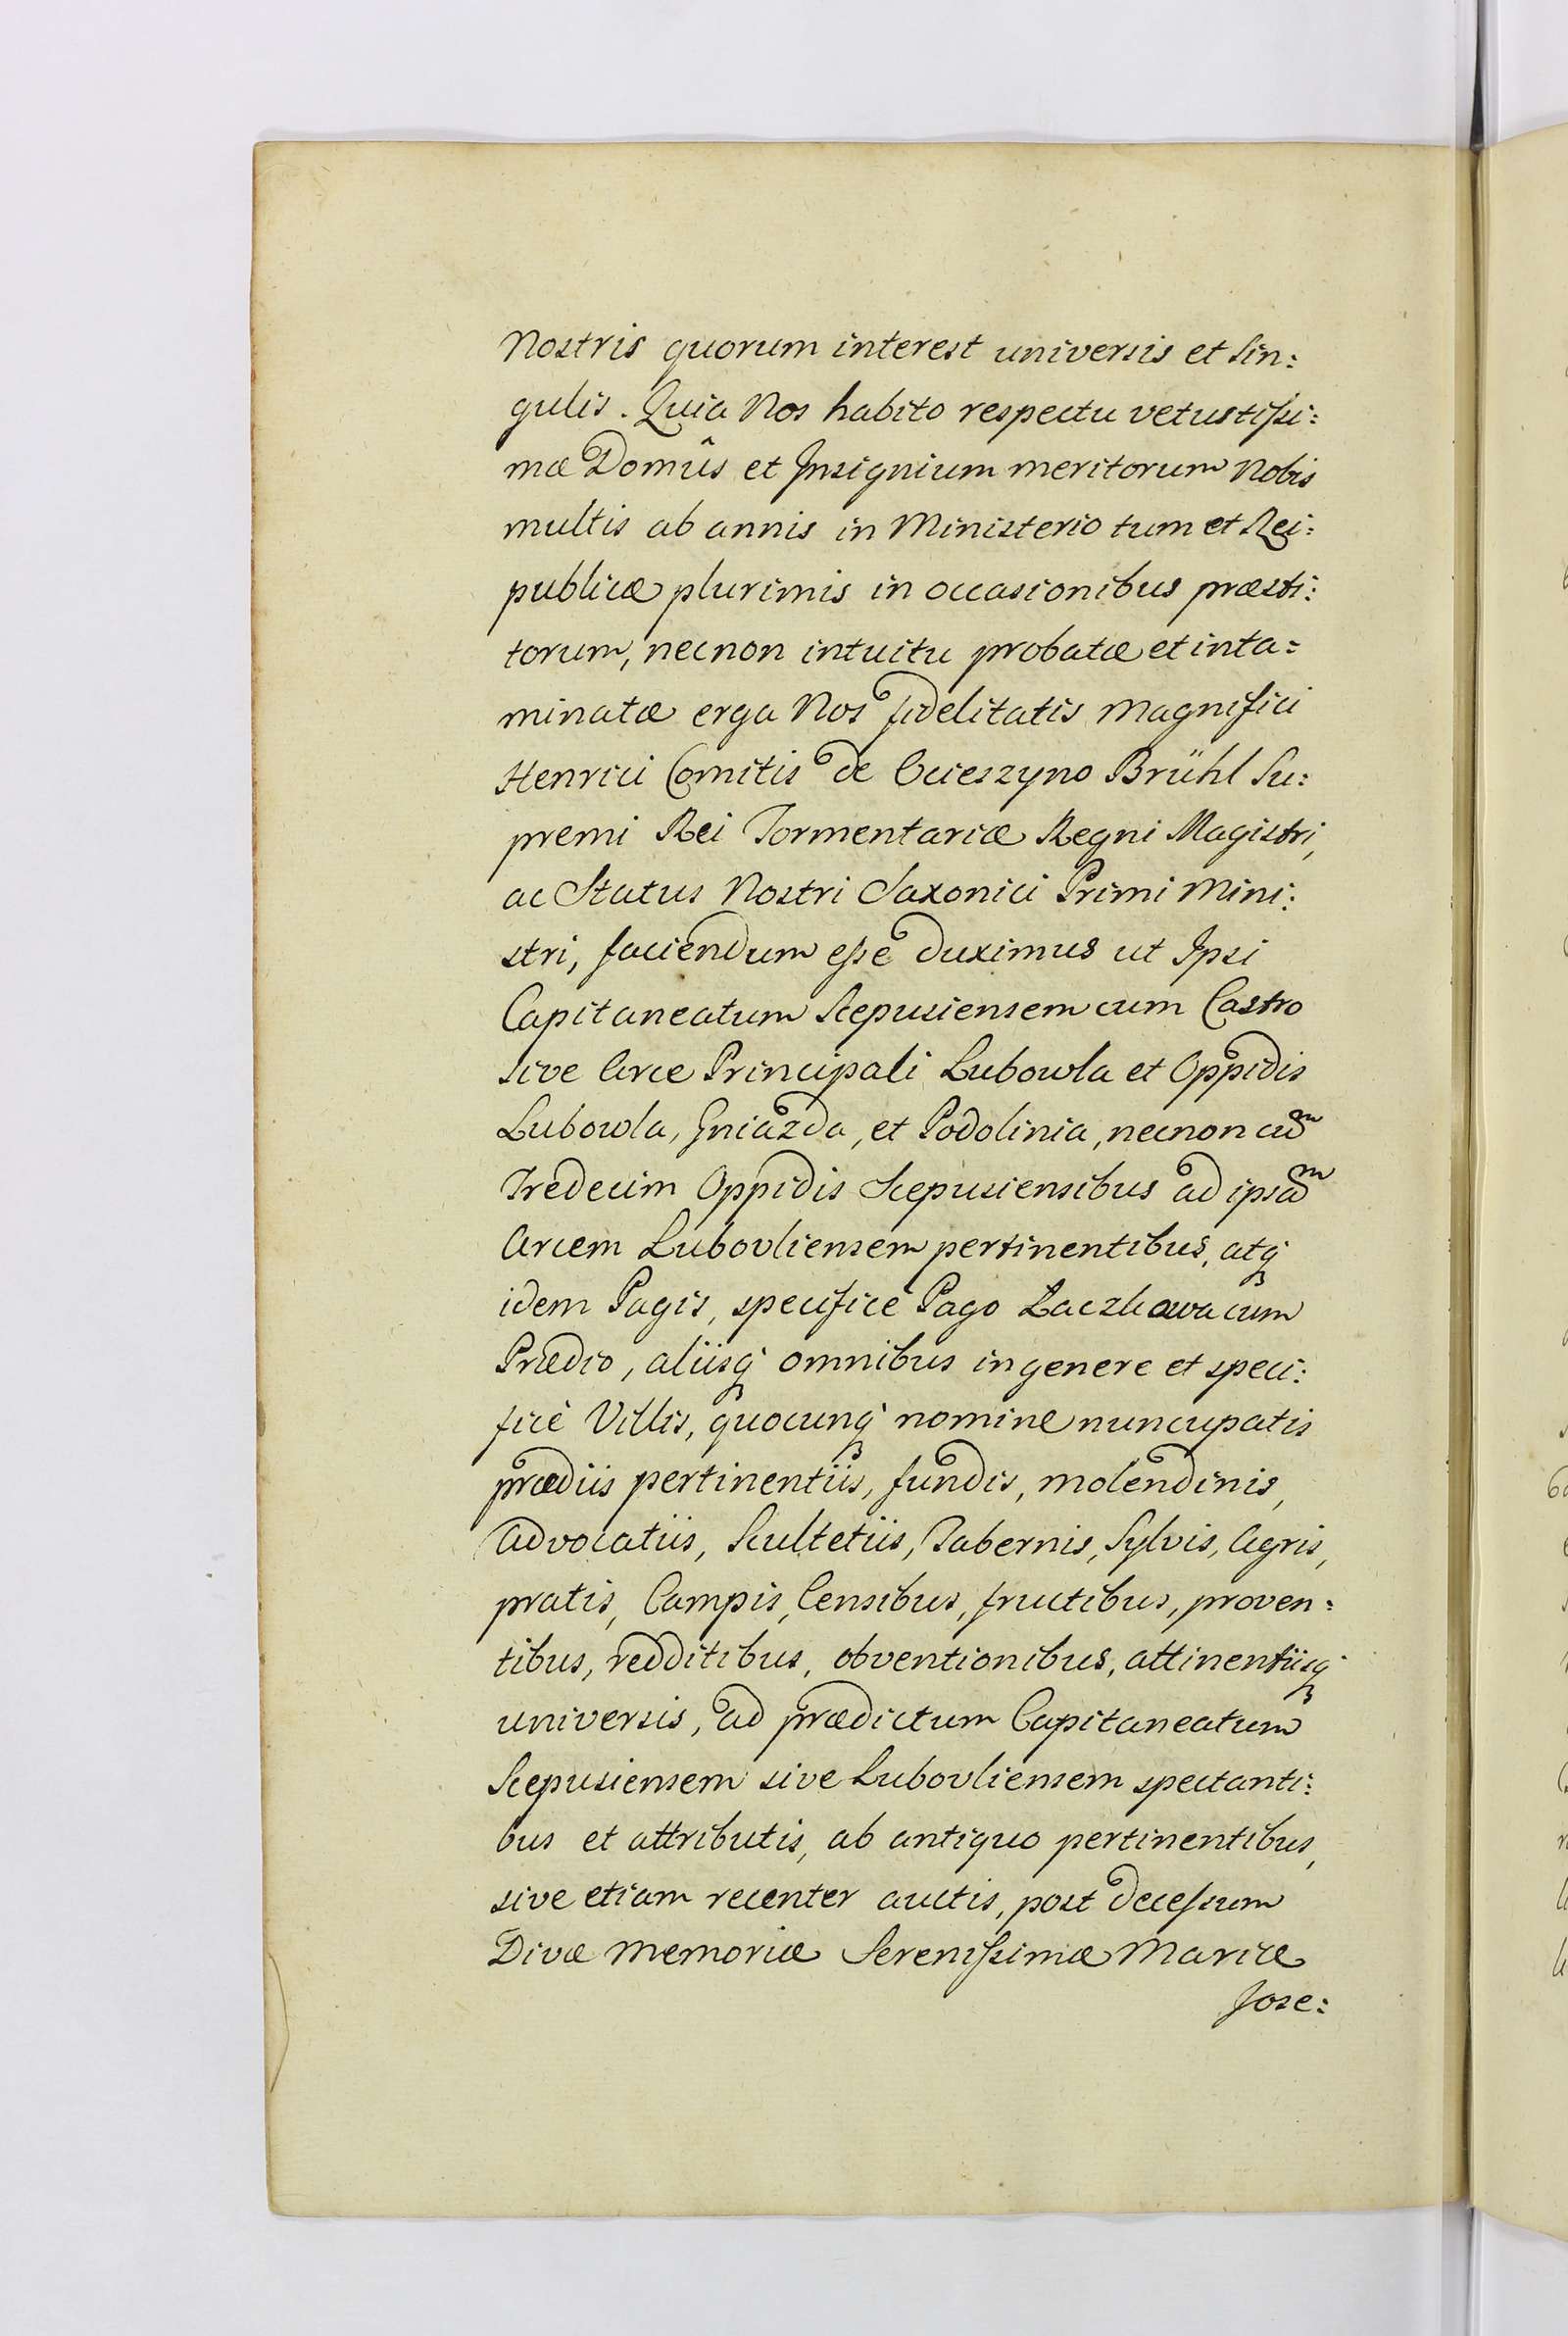 Nostris quorum interest universis et sin:
gulis. Quia Nos habito respectu vetustissi:
mæ Domûs et Insignium meritorum Nobis
multis ab annis in Ministerio tum et Rei:
publicæ plurimis in occasionibus præsti:
torum, necnon intuitu probatæ et inta=
minatæ erga Nos fidelitatis Magnifici
Henrici Comitis de Ocieszyno Brühl Su:
premi Rei Tormentariæ Regni Magistri,
ac Status Nostri Saxonici Primi Mini:
stri, faciendum esse duximus ut Ipsi
Capitaneatum Scepusiensem cum Castro
sive Arce Principali Lubowla et Oppidis
Lubowla, Gniazda, et Podolinia, necnon cum
Tredecim Oppidis Scepusiensibus ad ipsam
Arcem Lubovliensem pertinentibus, atq
idem Pagis, specifice Pago cum
Prædio, aliisq omnibus in genere et speci:
ficè Villis, quocunq nomine nuncupatis
prædiis pertinentiis, fundis, molendinis,
Advocatiis, Scultetiis, Tabernis, Sylvis, Agris,
pratis, Campis, Censibus, fructibus, proven:
tibus, redditibus, obventionibus, attinentiisq
universis, ad prædictum Capitaneatum
Scepusiensem sive Lubovliensem spectanti:
bus et attributis, ab antiquo pertinentibus,
sive etiam recenter auctis, post decessum
Divæ Memoriæ Serenissimæ Mariæ
Jose: